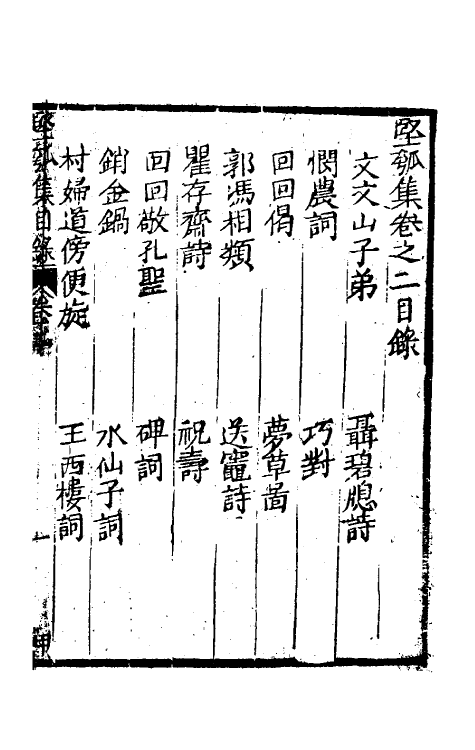 堅瓠集卷之二目錄
文文山子弟　聶碧牕詩
憫農詞　巧對
回回偈　夢草啚
郭馮相類　送竈詩
瞿存齋詩　祝壽
回回敬孔聖　碑詞
銷金鍋　水仙子詞
村婦道傍便旋　王西樓詞
堅瓠集目錄